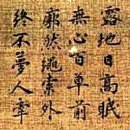 露地日高眠
無心百草前
廓然繩索外
終不夢人牽